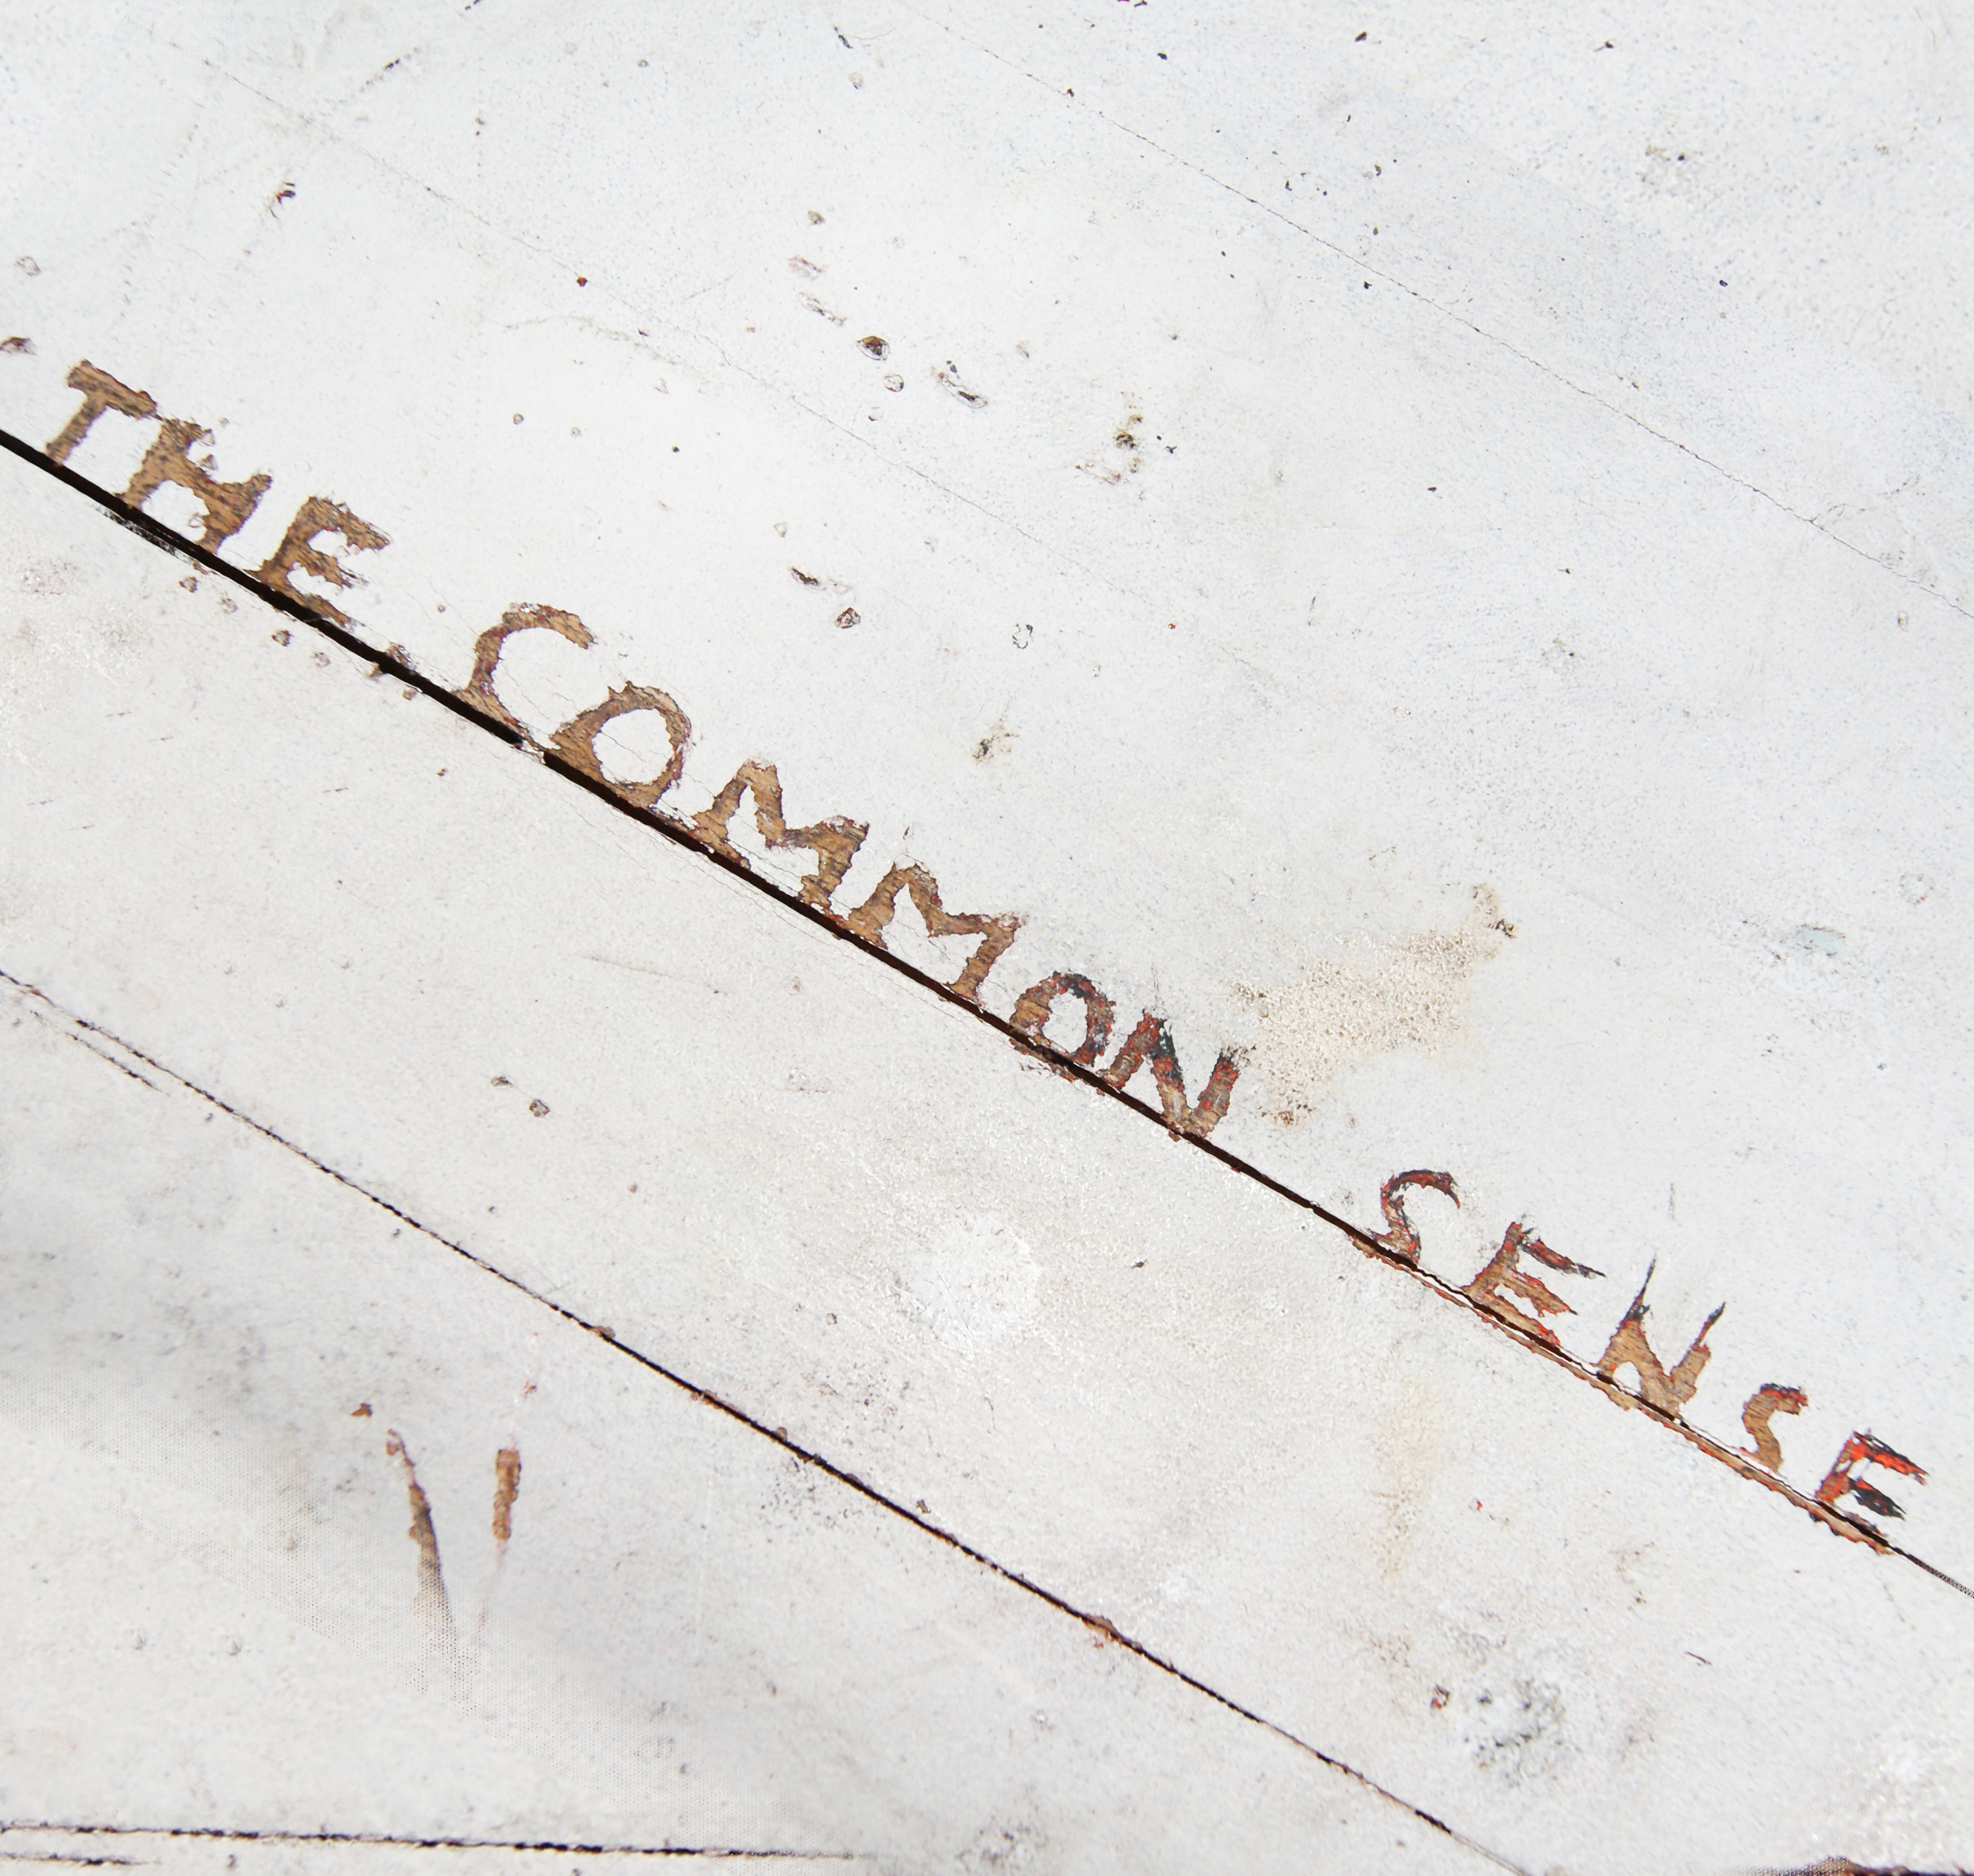 THE COMMON SENSE